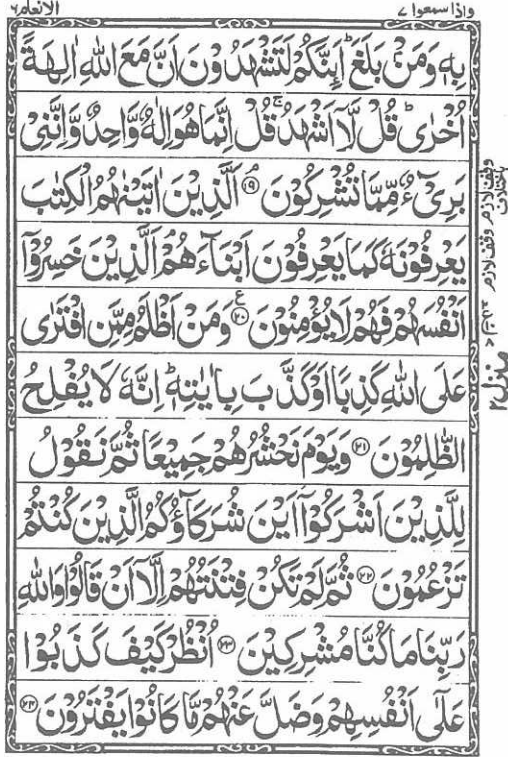 واذا سمعوا ۷
الانعام ۶
بِهٖ وَمَنْۢ بَلَغَ ؕ اَئِنَّكُمْ لَتَشْهَدُوْنَ اَنَّ مَعَ اللّٰهِ اٰلِهَةً
اُخْرٰى ؕ قُلْ لَّاۤ اَشْهَدُ ۚ قُلْ اِنَّمَا هُوَ اِلٰهٌ وَّاحِدٌ وَّاِنَّنِىْ
بَرِىْٓءٌ مِّمَّا تُشْرِكُوْنَ ۘ ﴿۱۹﴾ اَلَّذِيْنَ اٰتَيْنٰهُمُ الْكِتٰبَ
يَعْرِفُوْنَهٗ كَمَا يَعْرِفُوْنَ اَبْنَآءَهُمْ ۘ اَلَّذِيْنَ خَسِرُوْۤا
اَنْفُسَهُمْ فَهُمْ لَا يُؤْمِنُوْنَ ﴿۲۰﴾ ع وَمَنْ اَظْلَمُ مِمَّنِ افْتَرٰى
عَلَى اللّٰهِ كَذِبًا اَوْ كَذَّبَ بِاٰيٰتِهٖ ؕ اِنَّهٗ لَا يُفْلِحُ
الظّٰلِمُوْنَ ﴿۲۱﴾ وَيَوْمَ نَحْشُرُهُمْ جَمِيْعًا ثُمَّ نَقُوْلُ
لِلَّذِيْنَ اَشْرَكُوْۤا اَيْنَ شُرَكَآؤُكُمُ الَّذِيْنَ كُنْتُمْ
تَزْعُمُوْنَ ﴿۲۲﴾ ثُمَّ لَمْ تَكُنْ فِتْنَتُهُمْ اِلَّاۤ اَنْ قَالُوْا وَاللّٰهِ
رَبِّنَا مَا كُنَّا مُشْرِكِيْنَ ﴿۲۳﴾ اُنْظُرْ كَيْفَ كَذَبُوْا
عَلٰۤى اَنْفُسِهِمْ وَضَلَّ عَنْهُمْ مَّا كَانُوْا يَفْتَرُوْنَ ﴿۲۴﴾
وقف لازم
وقف لازم
منزل ۲